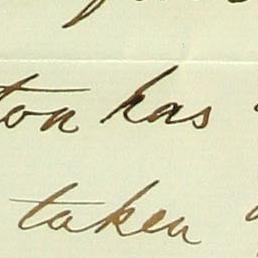 ton has
taken